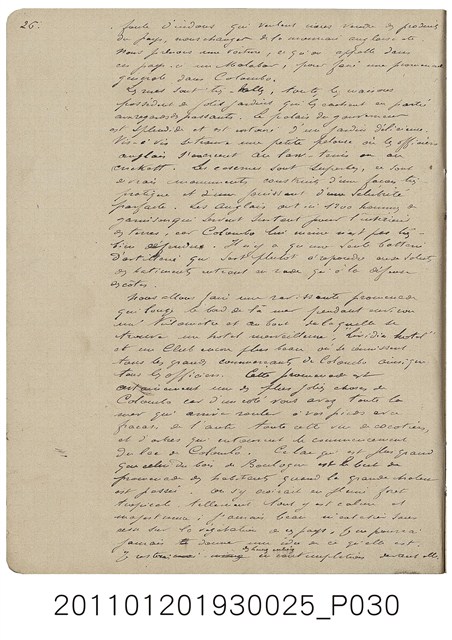 26.
foule d'indiens qui veulent nous vendre des produits
du pays, nous changer de la monnaie anglaise etc
Nous prenons une voiture, ce qu'on appelle dans
ce pays-ci un Malabar, pour faire une promenade
générale dans Colombo.
Les rues sont très-belles, toutes les maisons
possèdent de jolis jardins qui les cachent en partie
aux regards des passants. Le palais du gouvernement
est splendide et est entouré d'un jardin délicieux.
Vis-à-vis se trouve une petite pelouse où les officiers
anglais s'exercent au lawn-tennis ou au
crickett. Les casernes sont superbes, ce sont
de vrais monuments construits d'une façon très-
pratique et d'une salubrité
parfaite. Les Anglais ont ici 1200 hommes de
garnison qui servent surtout pour l'intérieur
des terres, car Colombo lui même n'est pas très-
bien défendue. Il n'y a qu'une seule batterie
d'artillerie qui sert plutôt à répondre aux saluts
des bâtiments entrant en rade qu'à la défense
des côtes.
Nous allons faire une ravissante promenade
qui longe le bord de la mer pendant environ
un Kilomètre et au bout de laquelle se
trouve un hotel merveilleux,
et un Club encore plus beau où se réunissent
tous les grands commerçants de Colombo ainsi que
tous les officiers. Cette promenade est
certainement une des plus jolies choses de
Colombo car d'un côté vous avez toute la
mer qui arrive rouler à vos pieds avec
fracas, de l'autre toute cette vue de cocotiers
et d'arbres qui entourent le commencement
du lac de Colombo. Ce lac qui est plus grand
que celui du bois de Boulogne est le but de
promenade des habitants quand la grande chaleur
est passée. On s'y croirait en pleine forêt
tropicale tellement tout y est calme et
majestueux. J'aurais beau m'extasier sans
cesse sur la végétation de ces pays, je ne pourrai
jamais donner une idée de ce qu'elle est.
en contemplation devant elle
201101201930025_P030